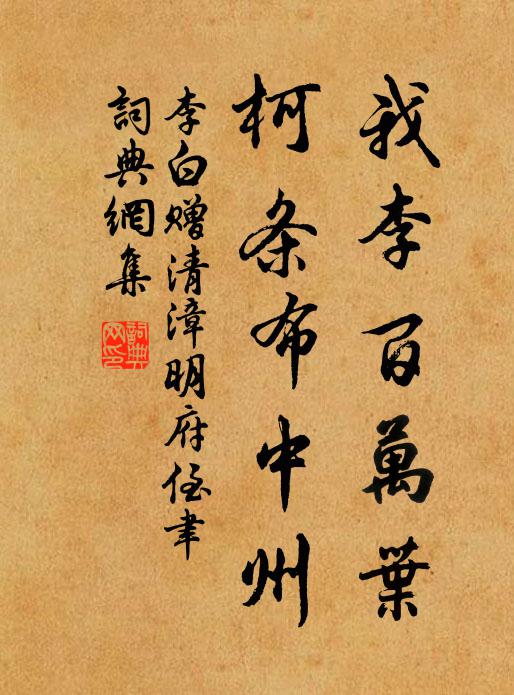 我李百萬葉
柯条布中州
李白赠清漳明府侄聿
詞典網集
詞典网印